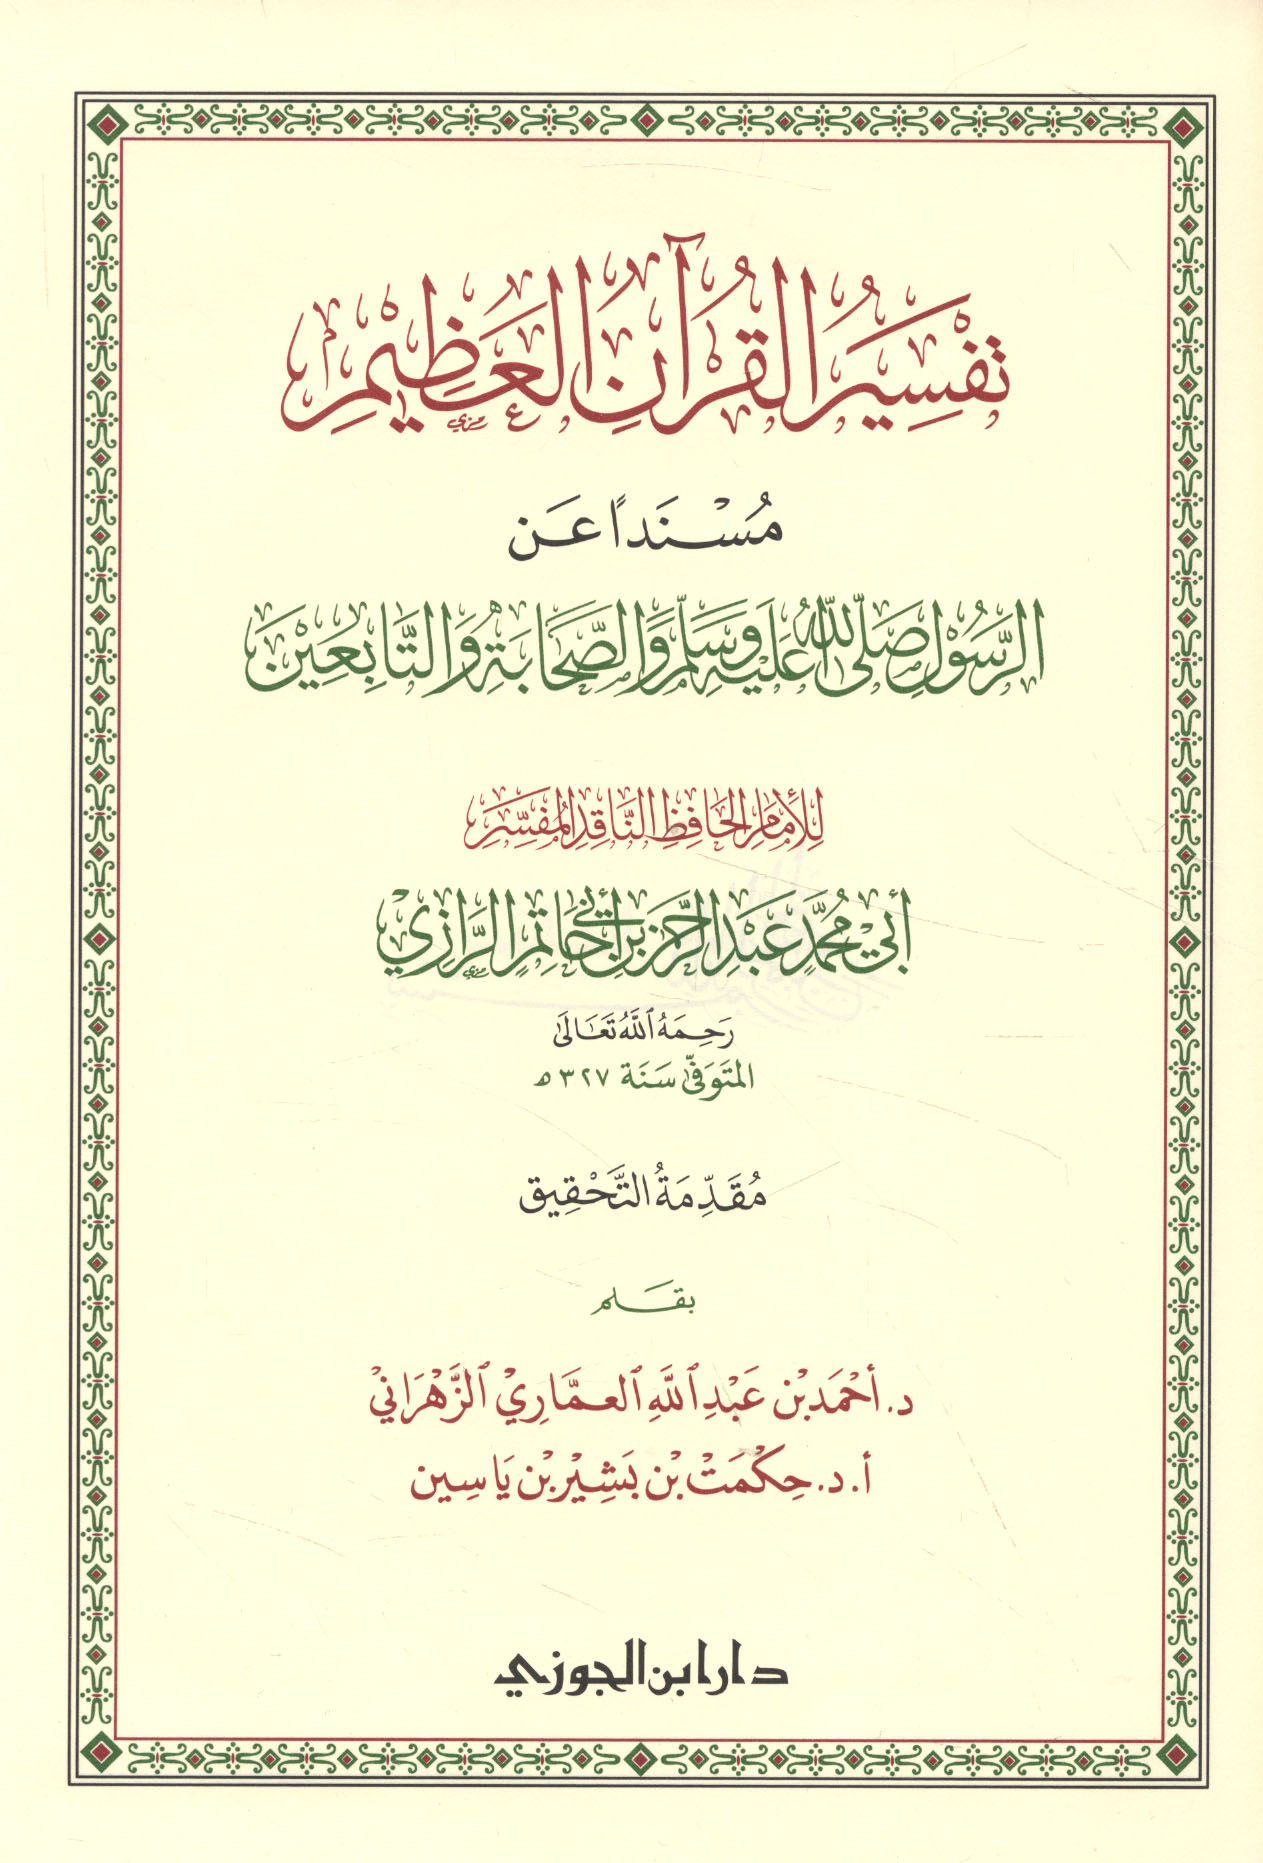 تَفْسِيرُ القُرْآنِ العَظِيْمِ
مُسْنَدًا عَن
الرَّسُوْلِ صَلَّى اللهُ عَلَيْهِ وَسَلَّمَ وَالصَّحَابَةِ وَالتَّابِعِيْنَ
لِلْأِمَامِ الحَافِظِ النَّاقِدِ المُفَسِّرِ
أَبِيْ مُحَمَّدٍ عَبْدِ الرَّحْمَنِ بْنِ أَبِيْ حَاتِمٍ الرَّازِيْ
رَحِمَهُ ٱللَّهُ تَعَالَىٰ
المُتَوَفَّى سَنَة ٣٢٧ ه
مُقَدِّمَةُ التَّحْقِيق
بقَلم
د. أَحْمَد بْن عَبْدِ ٱللَّهِ ٱلعمَّارِيْ ٱلزَّهْرَانِيْ
أ. د. حِكْمَتْ بْن بَشِيْر بْن يَاسِين
دار ابن الجوزي